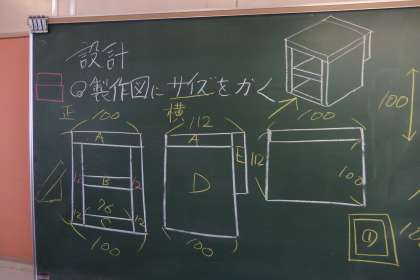 設計
◎製作図にサイズをかく
正 100 横 112 100 100
A A E 112
12 B 12 D 100
12 76 12
C
100 100 ①